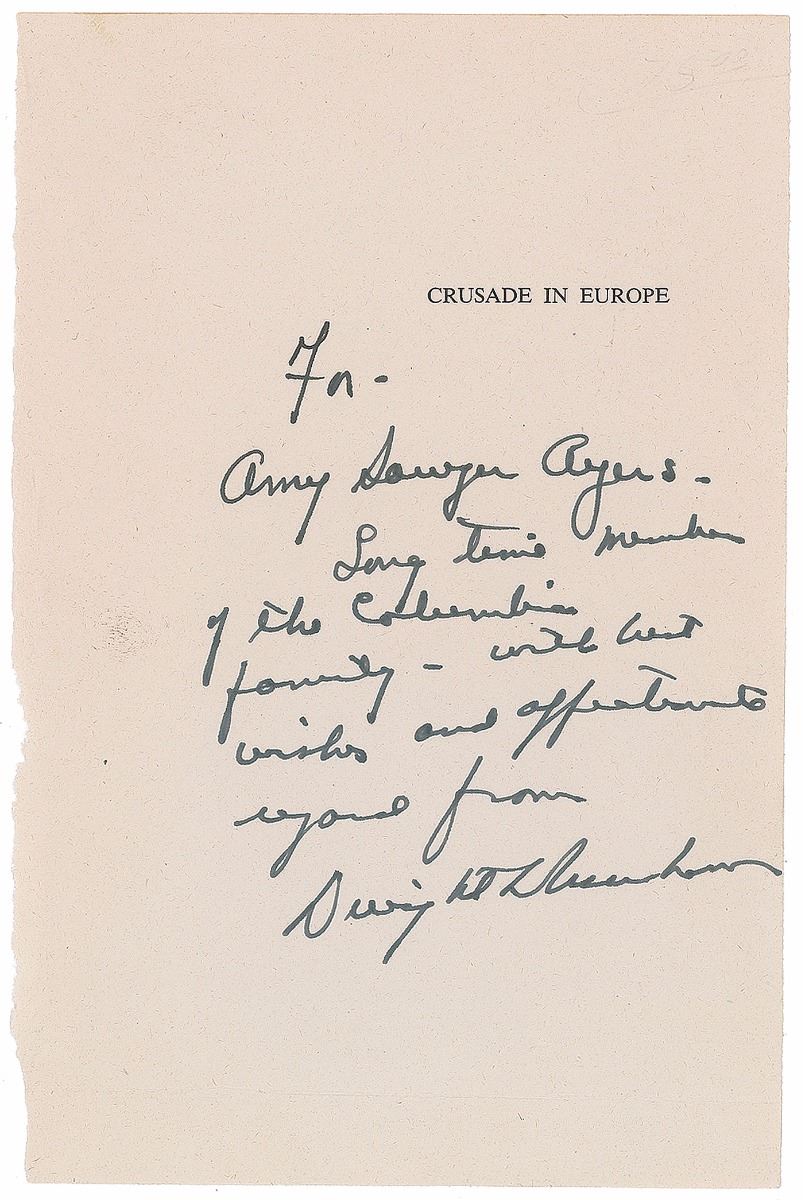 75 00
CRUSADE IN EUROPE
For -
Amy Sawyer Ayers -
Long time member
of the Columbia
family - with best
wishes and affectionate
regard from
Dwight D Eisenhower